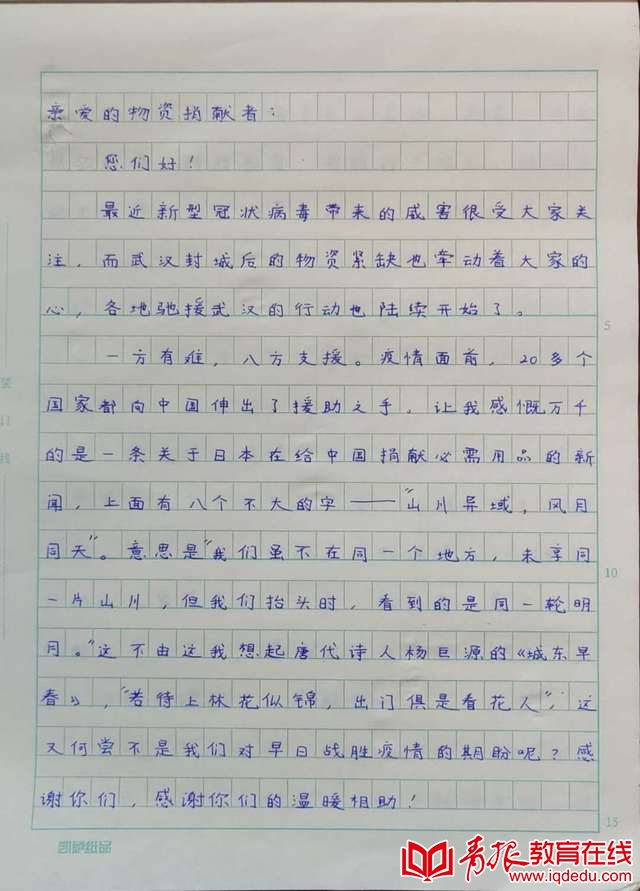 亲爱的物资捐献者：
您们好！
最近新型冠状病毒带来的威害很受大家关
注，而武汉封城后的物资紧缺也牵动着大家的
心，各地驰援武汉的行动也陆续开始了。
5
一方有难，八方支援。疫情面前，20多个
国家都向中国伸出了援助之手。让我感慨万千
的是一条关于日本在给中国捐献必需用品的新
闻，上面有八个不大的字——“山川异域，风月
同天”。意思是“我们虽不在同一个地方，未享同
10
一片山川，但我们抬头时，看到的是同一轮明
月。”这不由这我想起唐代诗人杨巨源的《城东早
春》，“若待上林花似锦，出门俱是看花人”，这
又何尝不是我们对早日战胜疫情的期盼呢？感
谢你们，感谢你们的温暖相助！
15
青报教育在线
www.iqdedu.com